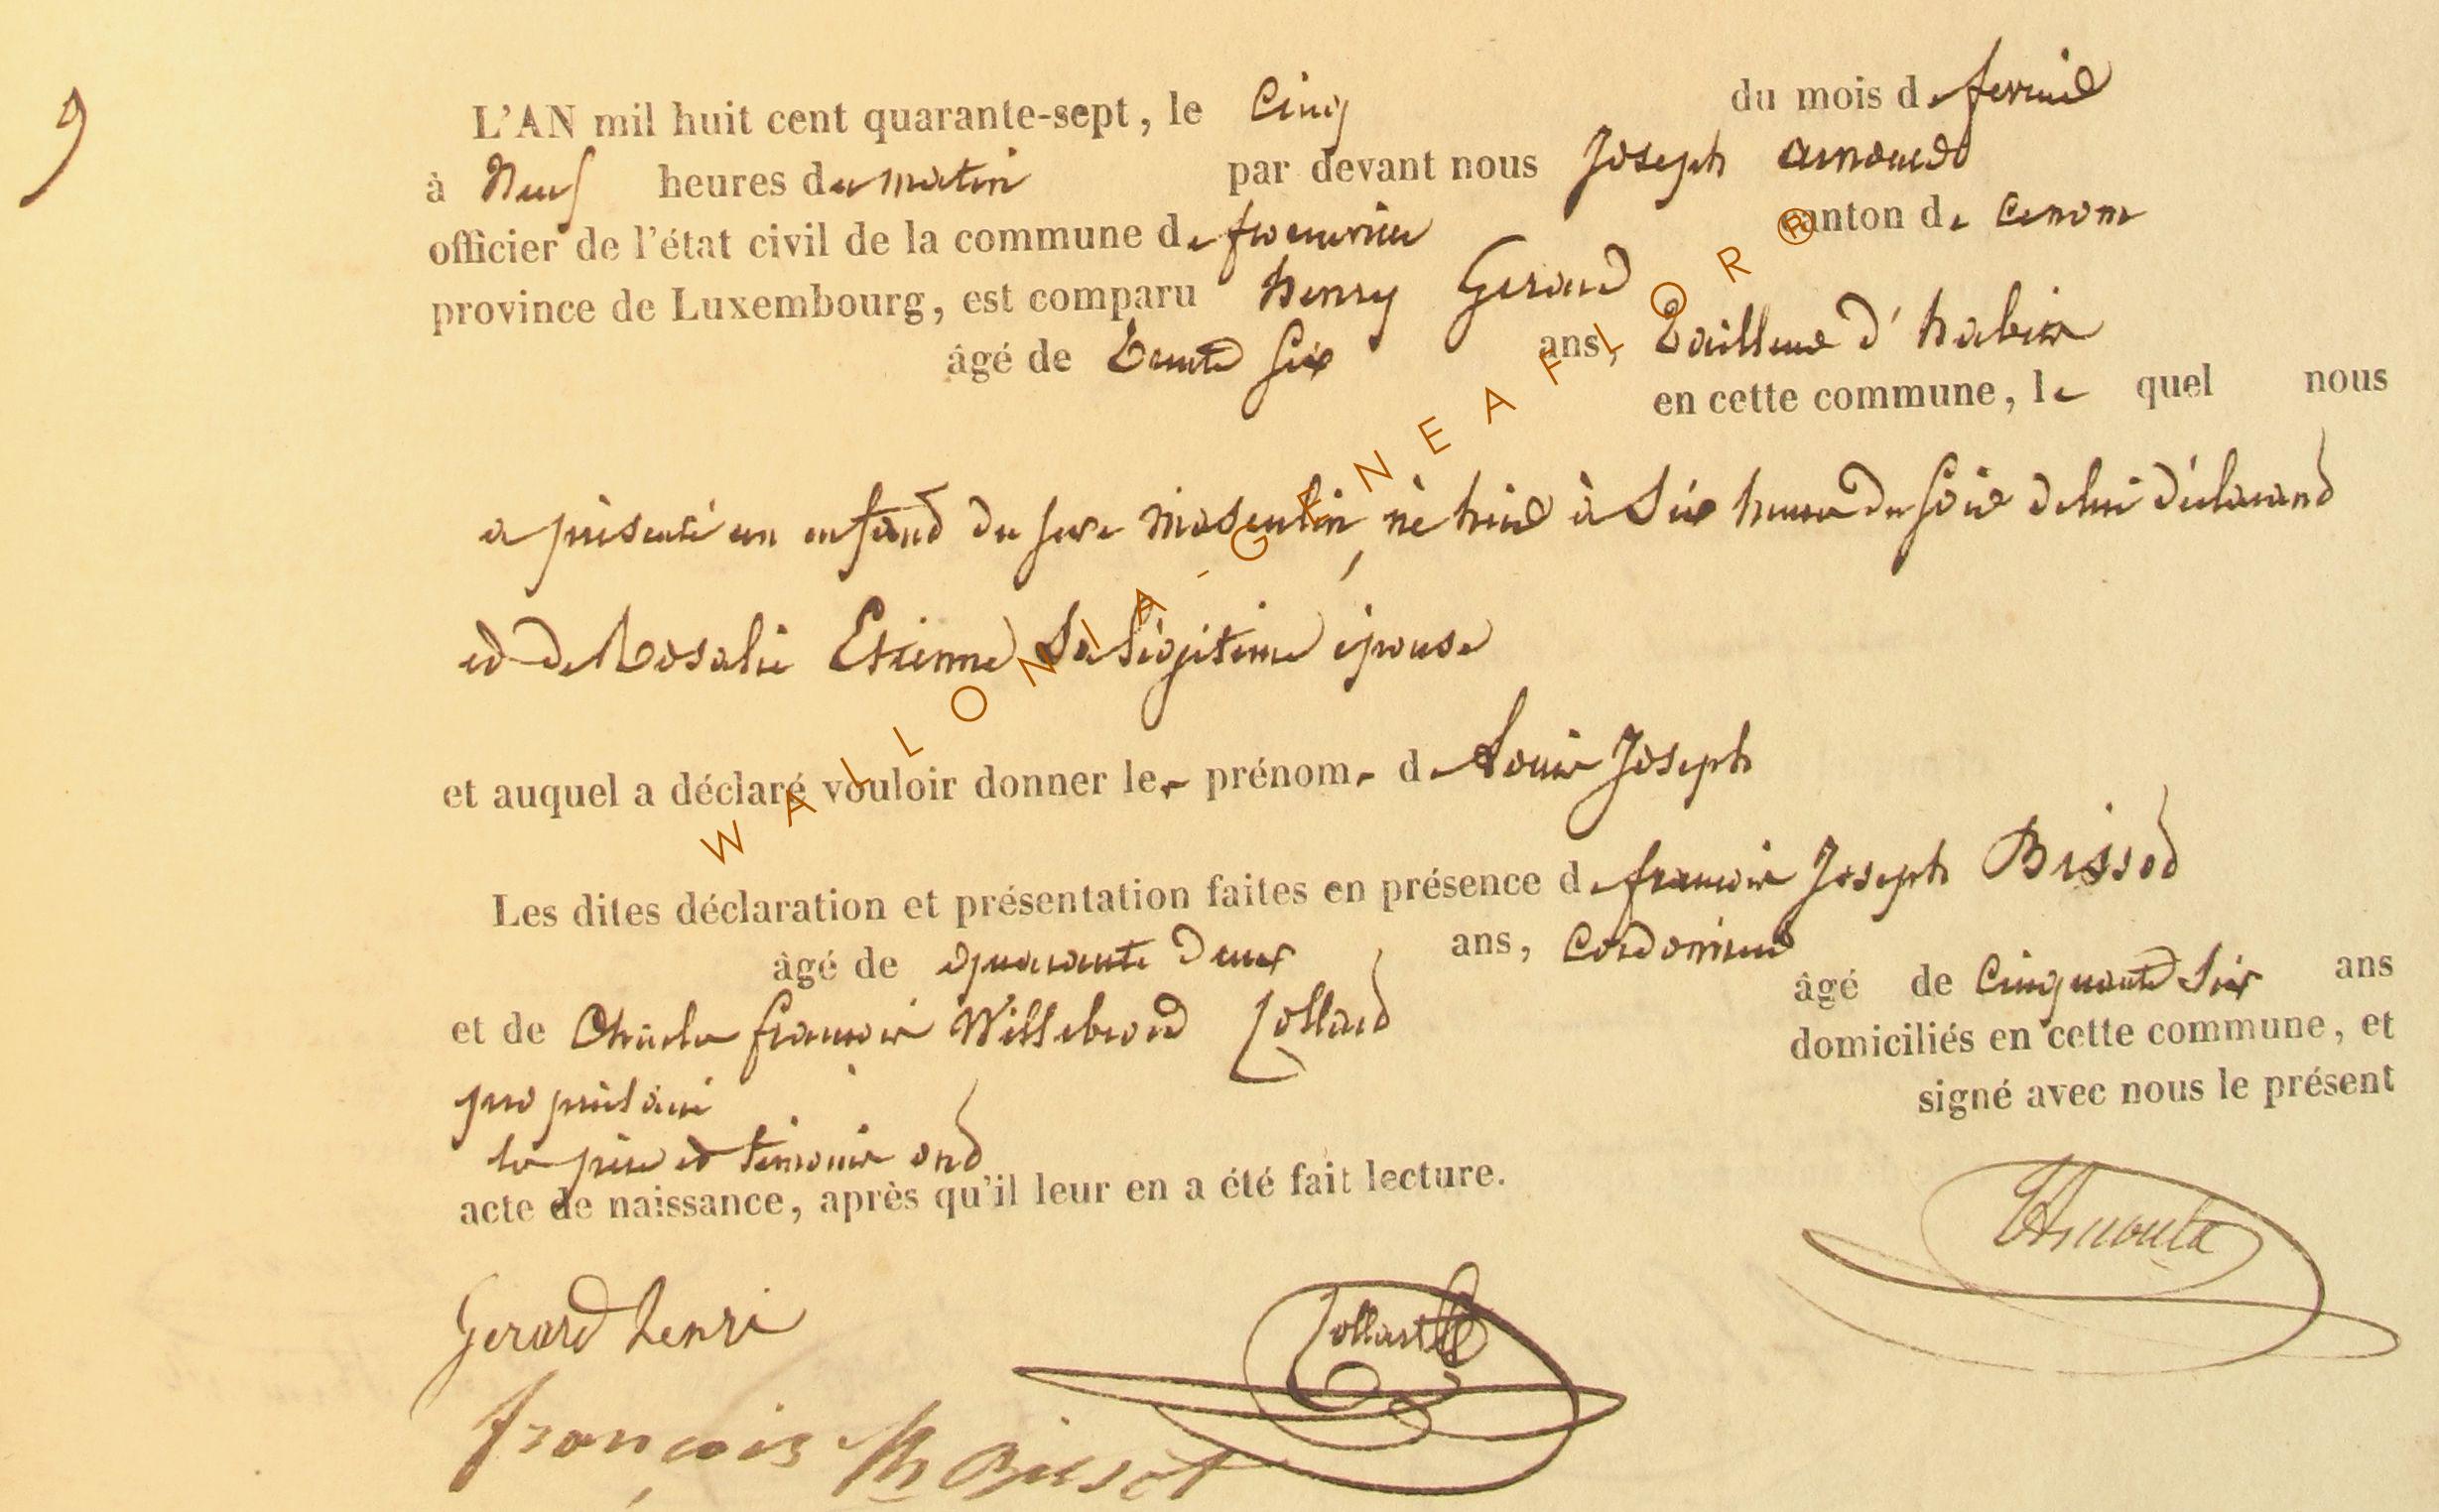 9
L'AN mil huit cent quarante-sept, le Cinq du mois de fevrier
à Neuf heures du matin par devant nous Joseph arnould
officier de l'état civil de la commune de canton de
province de Luxembourg, est comparu henry Gerard
âgé de trente Six ans, tailleur d'habits
en cette commune, le quel nous
a présenté un enfant du sexe masculin, né hier à Six heures du soir de lui déclarant
et de Rosalie Etienne Sa légitime épouse
et auquel a déclaré vouloir donner les prénoms de Louis Joseph
Les dites déclaration et présentation faites en présence de francois Joseph Bissot
âgé de quarante deux ans, cordonnier
et de Charles francois Willebrord Collard âgé de Cinquante Six ans
propriétaire domiciliés en cette commune, et
les père et témoins ont signé avec nous le présent
acte de naissance, après qu'il leur en a été fait lecture.
Gerard henri
Collart
françois Jh Bissot
WALLONIA-GENEAFLOR®